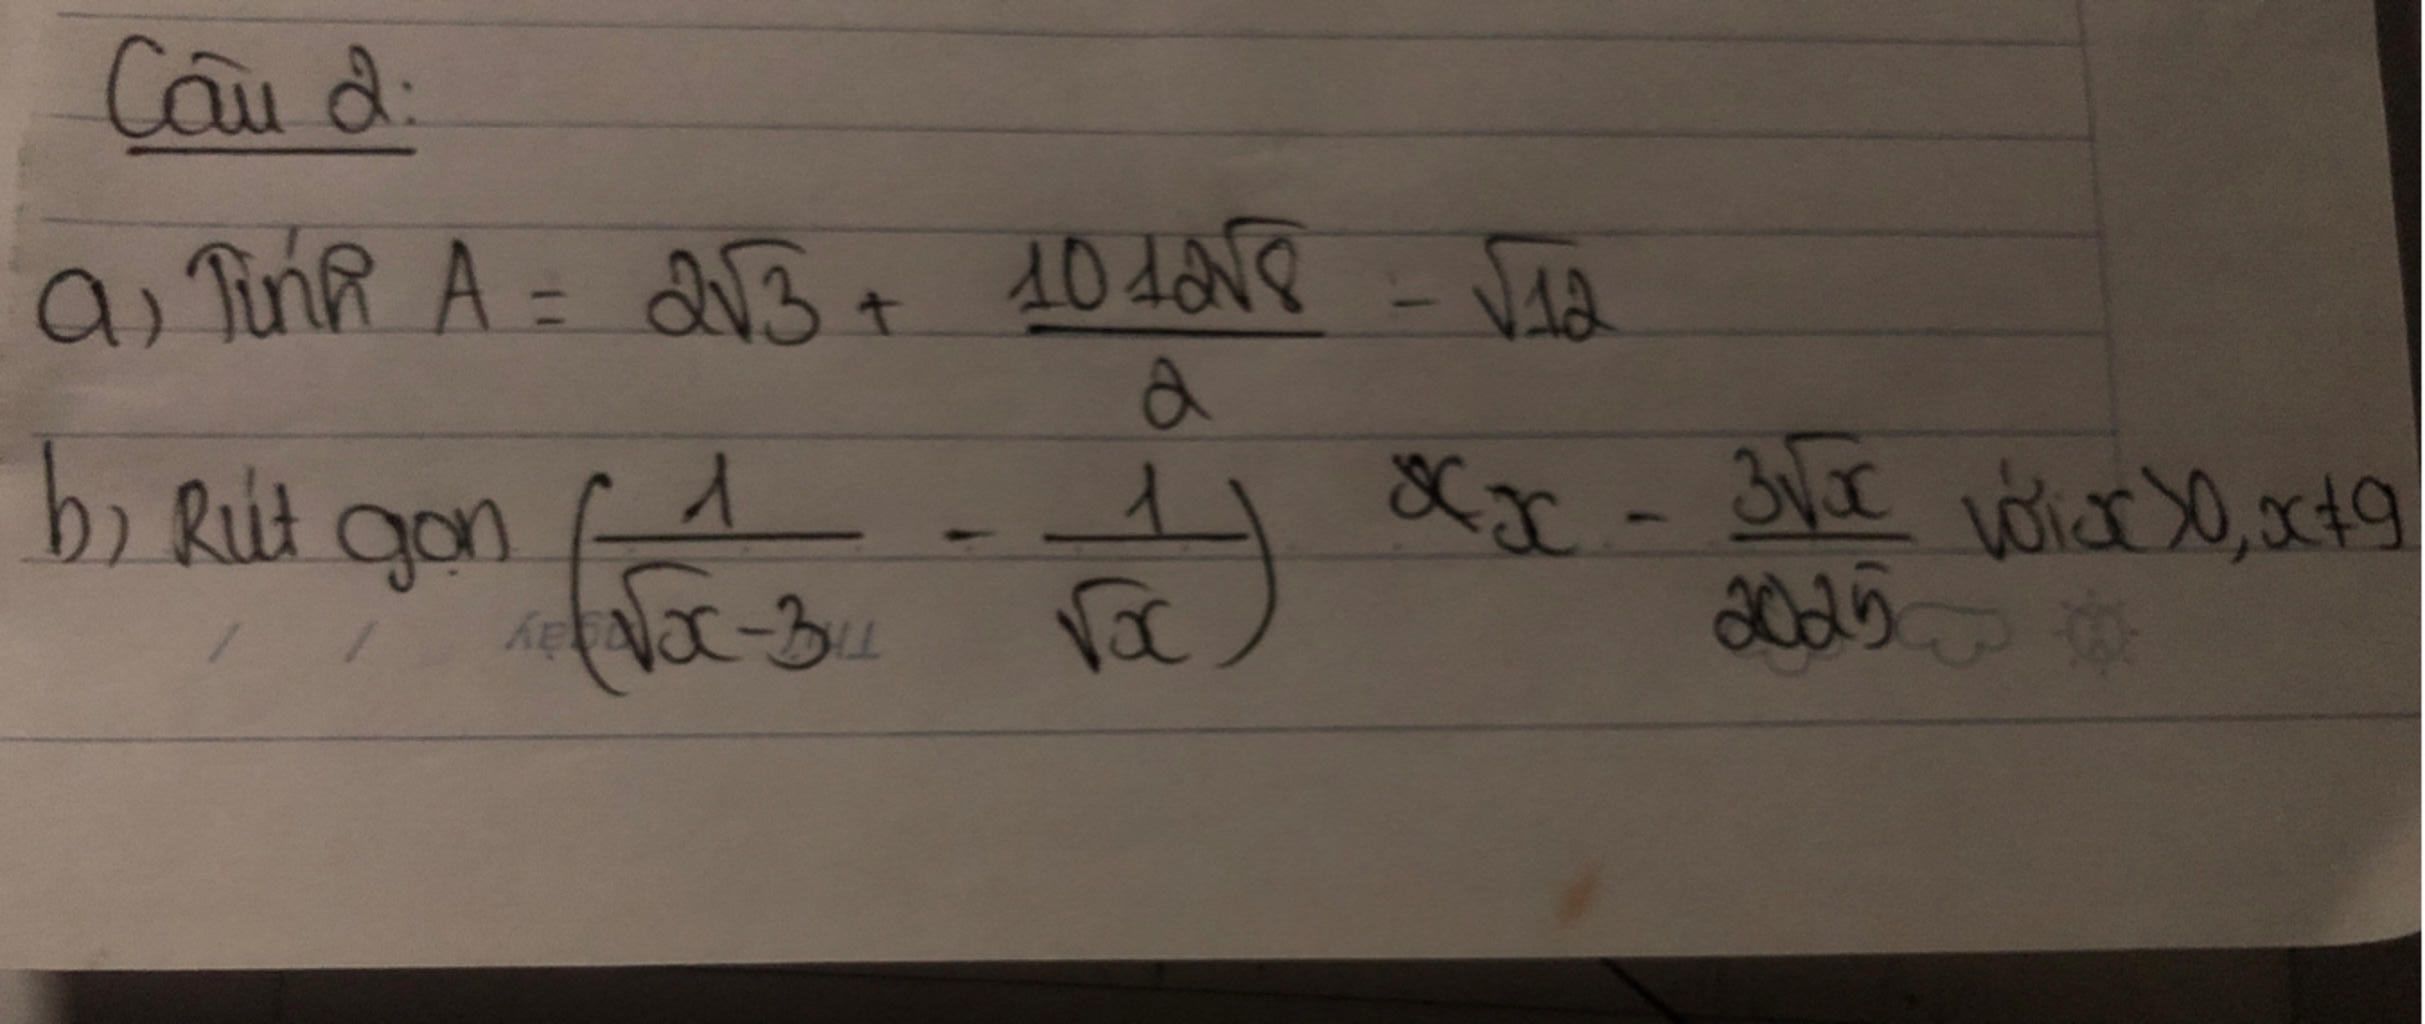 Câu 2:
a, Tính A = 2√3 + (1012√8)/2 - √12
b) Rút gọn (1/(√x-3) - 1/√x) x x - (3√x)/2025 với x>0, x≠9